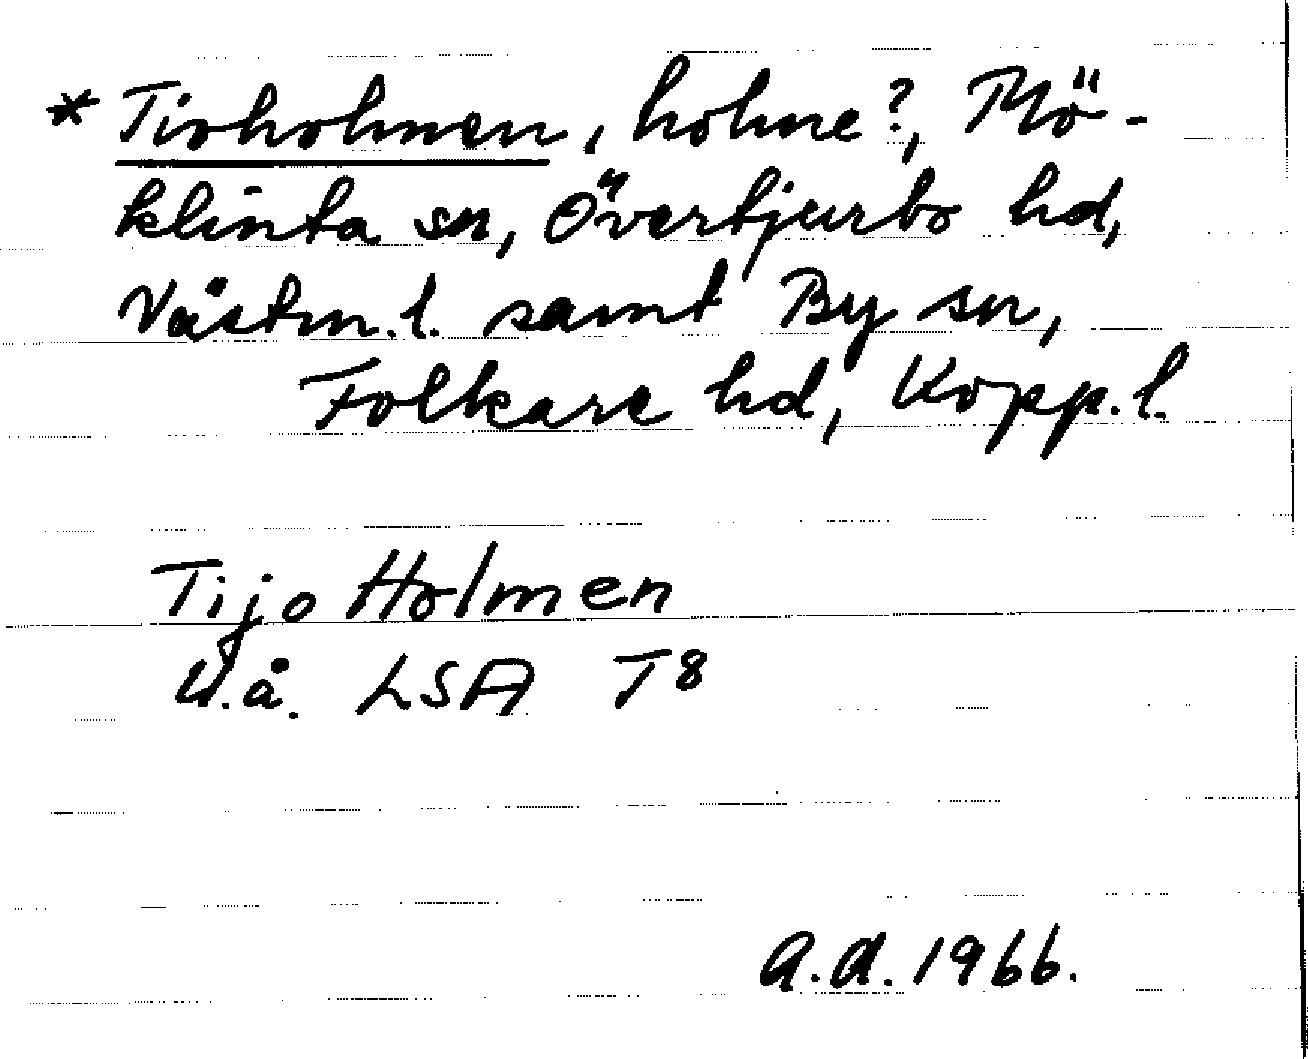 * Tioholmen, holme?, Mö-
klinta sn, Övertjurbo hd,
Västm.l. samt By sn,
Folkare hd, Kopp.l.
Tijo Holmen
U.å. LSA T8
A.A. 1966.